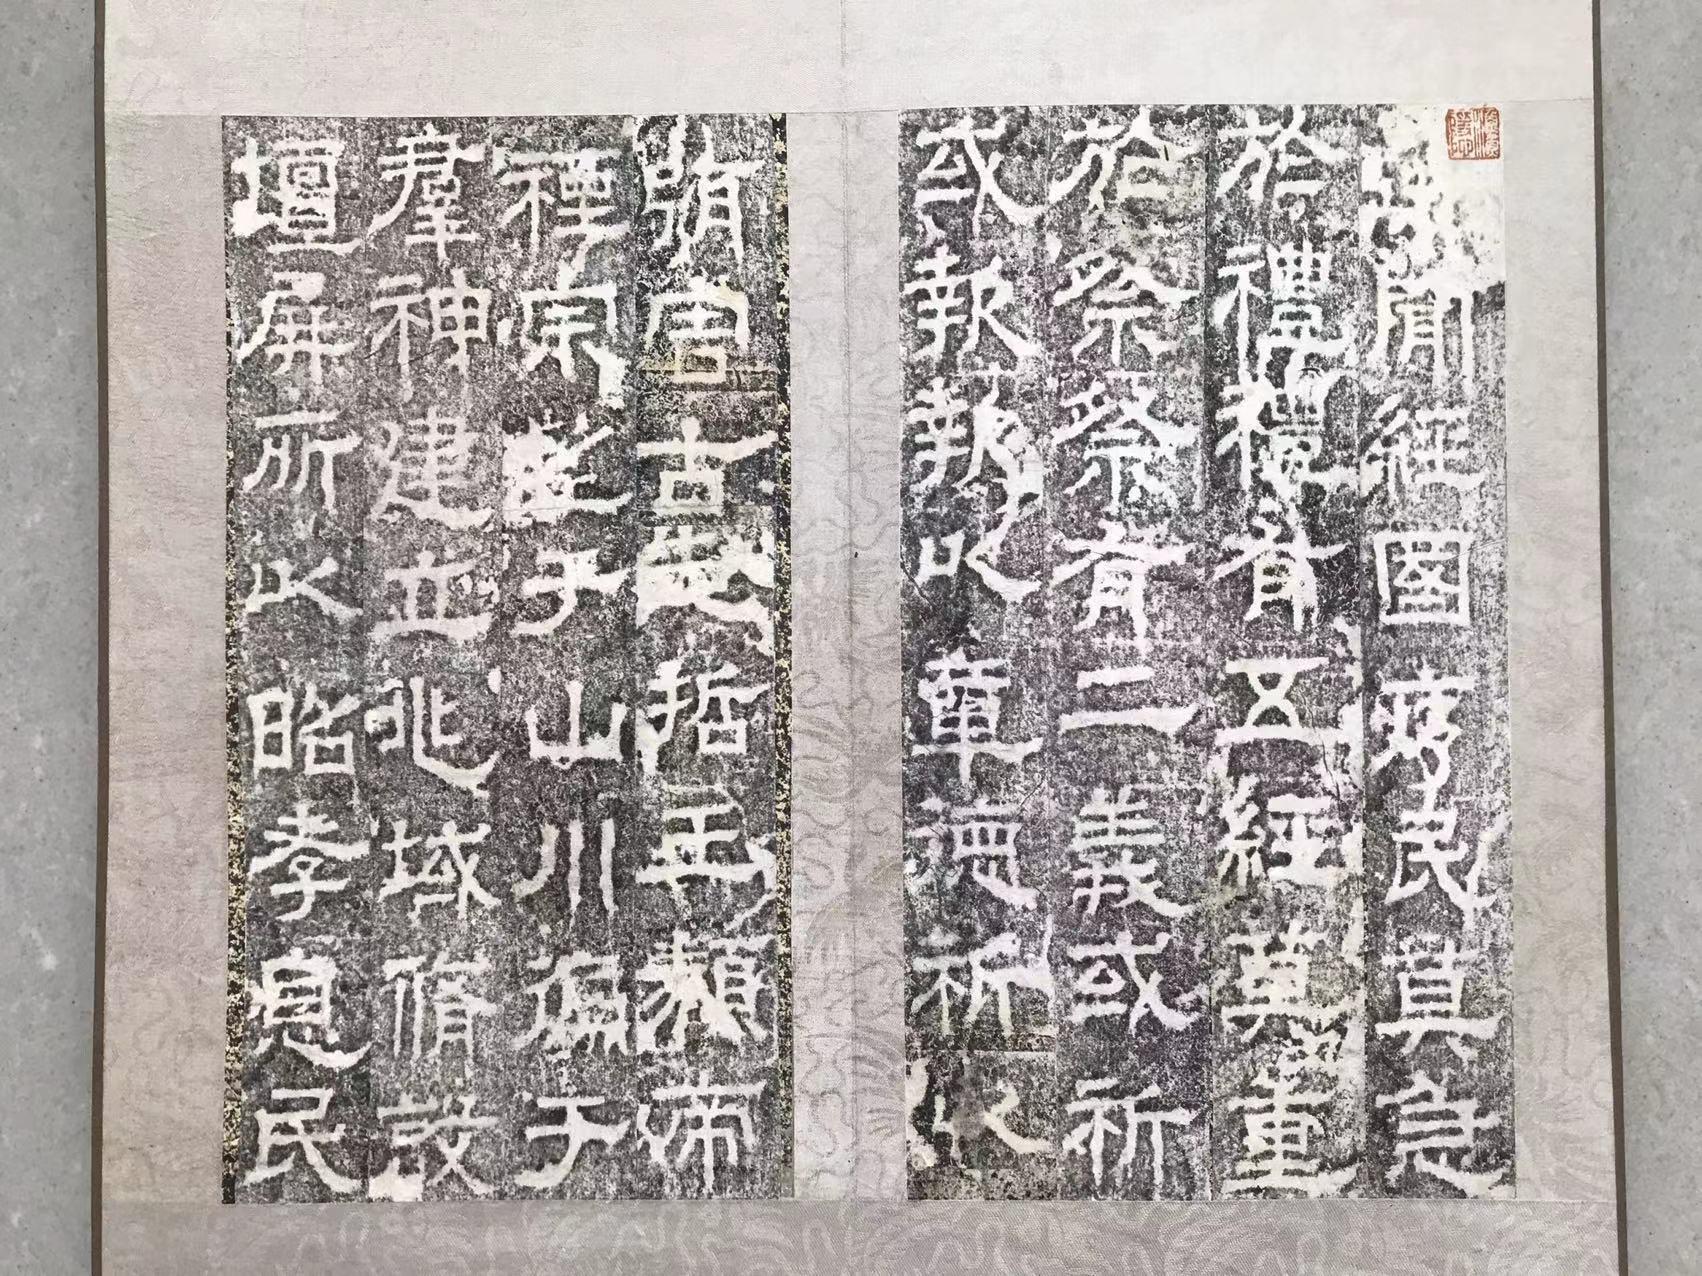 聞經國序民莫急
於禮禮有五經莫重
於祭祭有二義或祈
或報報以章德祈以
害古先哲王類帝
禋宗望于山川徧于
羣神建立兆域脩設
壇屏所以昭孝息民